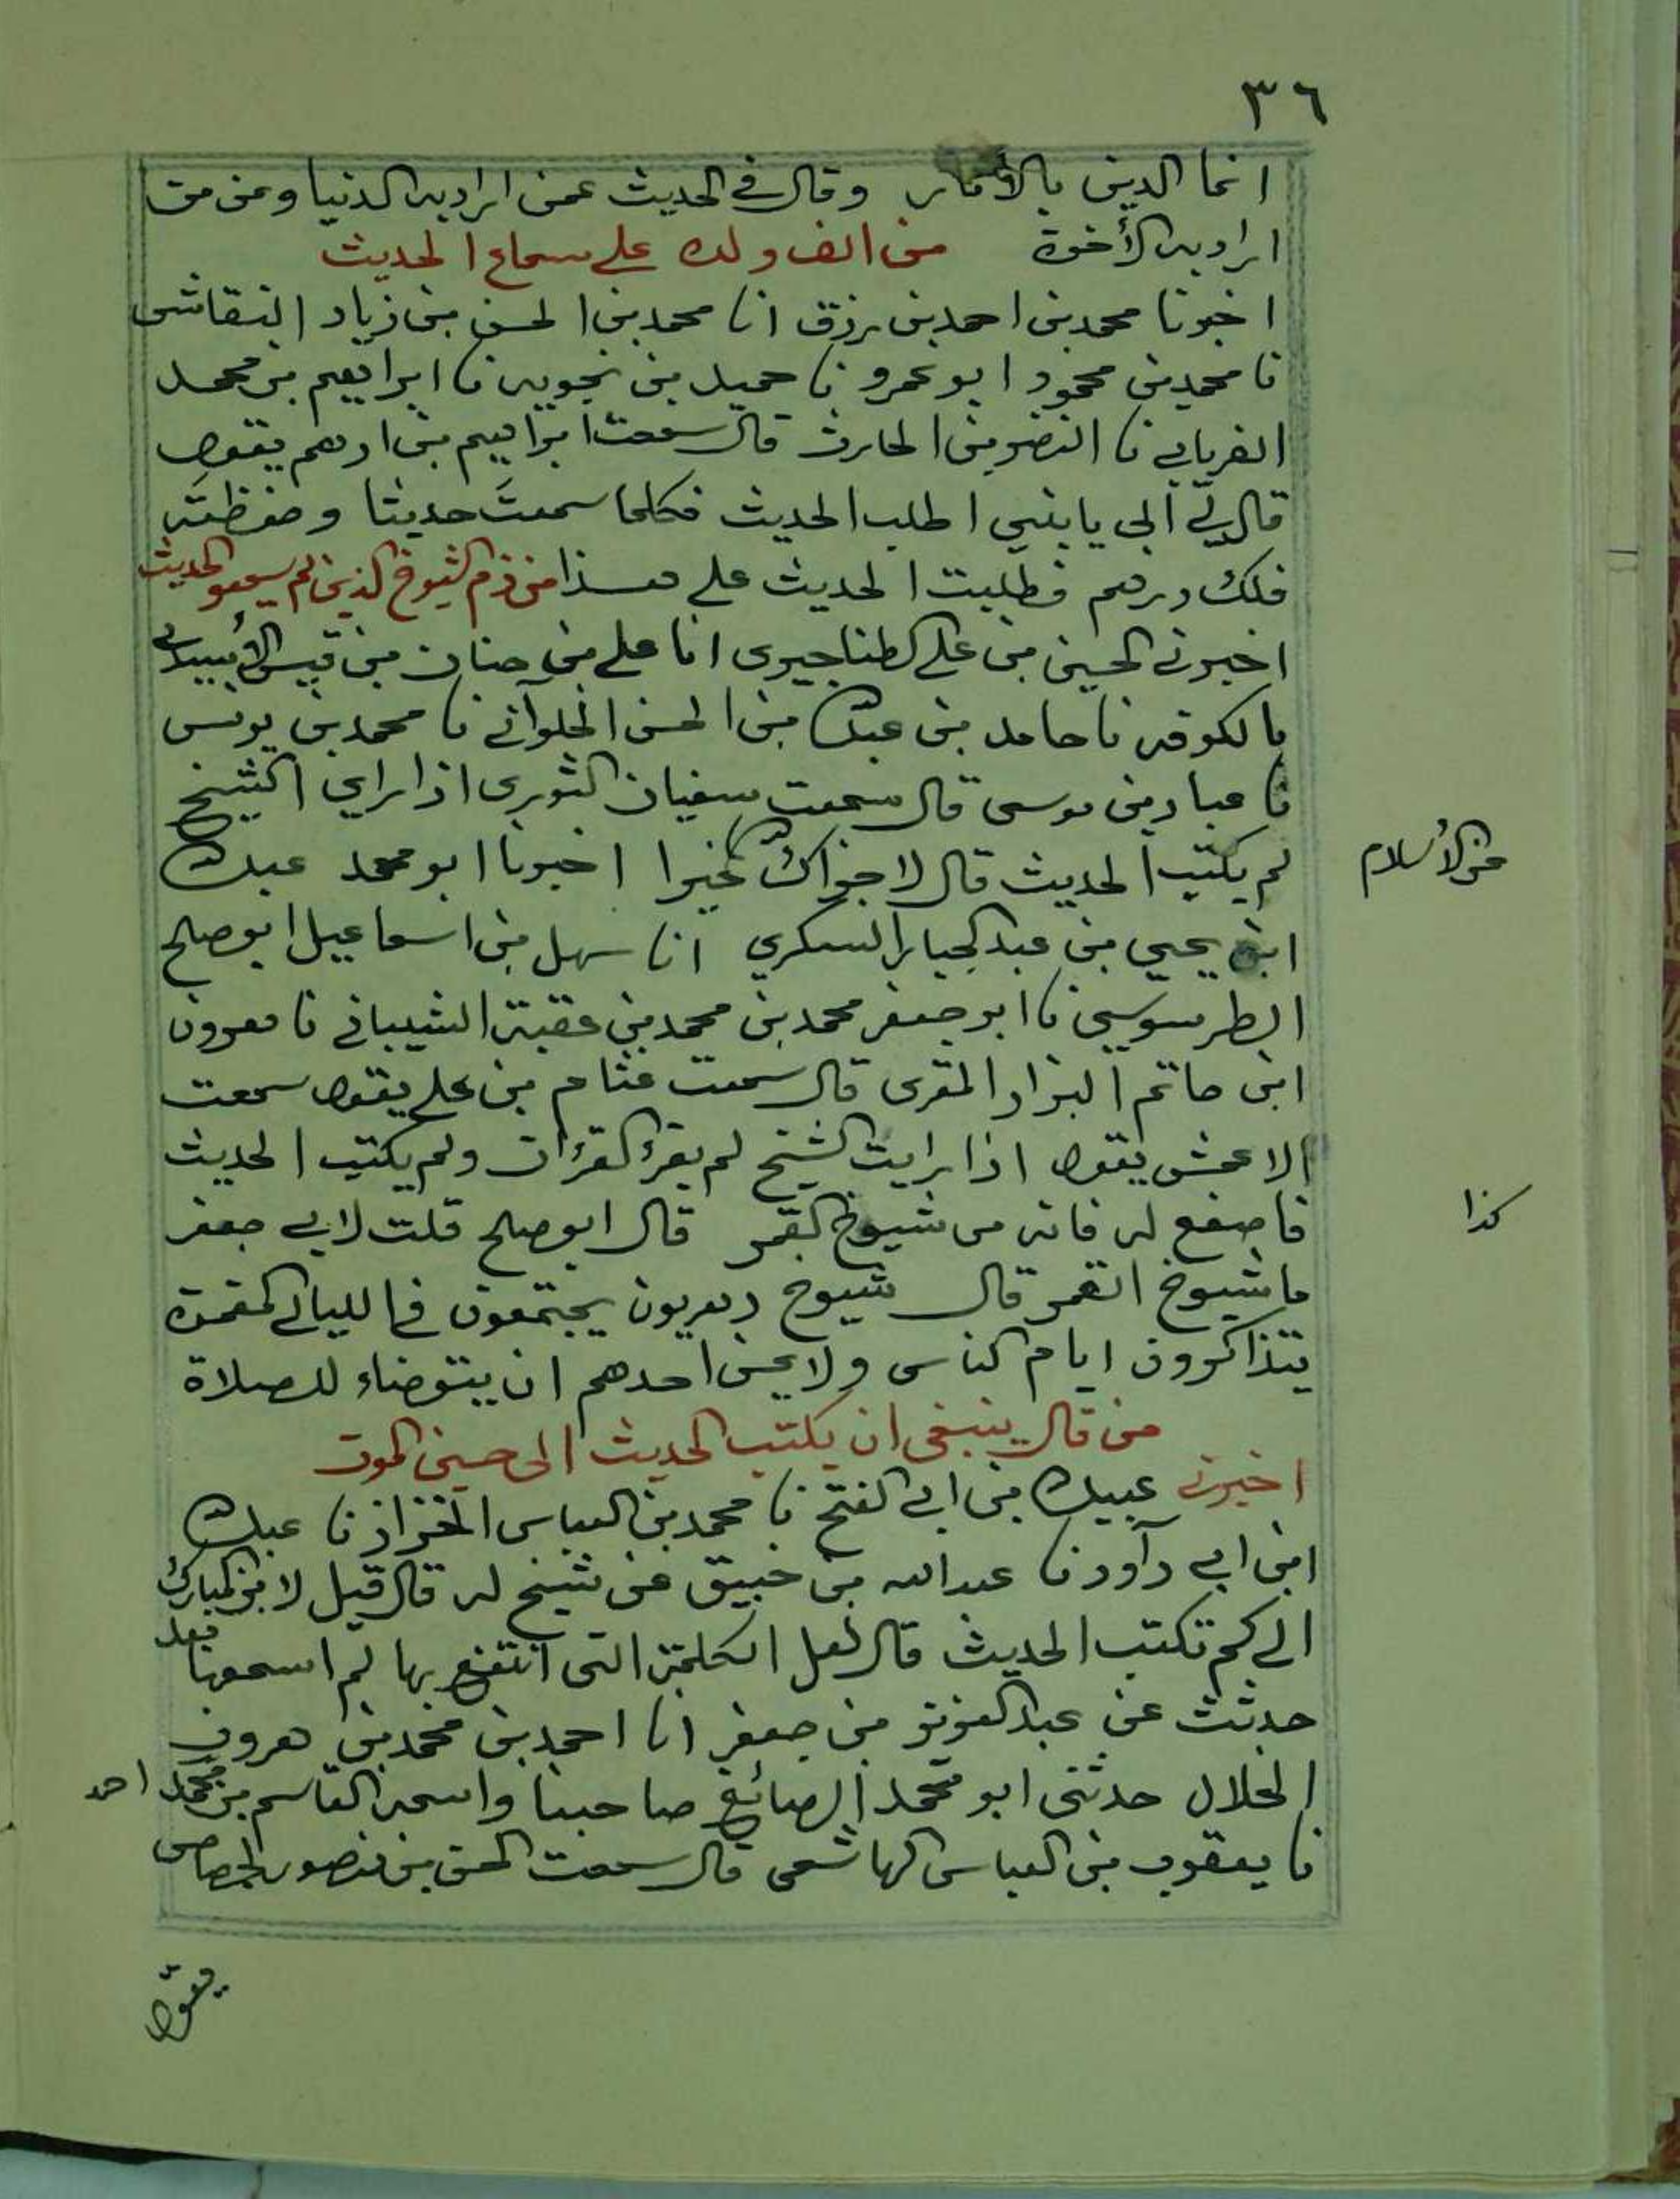 ٣٦
انما الدين بالآثار وقال في الحديث عمن اراد به الدنيا وعن من
اراد به الأخرة من الف ولده على سماع الحديث
اخبرنا محمد بن احمد بن رزق انا محمد بن الحسن بن زياد النقاش
نا محمد بن محمود ابو عمرو نا حميد بن زنجويه نا ابراهيم بن محمد
الفريابي نا النضر بن الحارث قال سمعت ابراهيم بن ادهم يقول
قال لي ابي يا بني اطلب الحديث فكلما سمعت حديثا وحفظته
فلك درهم فطلبت الحديث على هذا من ذم الشيوخ الذين لم يسمعو الحديث
اخبرني الحسين بن علي الطناجيري انا علي بن حنان بن قيس
بالكوفه نا حامد بن عبد الله بن الحسن الحلواني نا محمد بن يونس
نا عباد بن موسى قال سمعت سفيان الثوري اذا راي الشيخ
لم يكتب الحديث قال لا جزاك الله خيرا اخبرنا ابو محمد عبد الله
عن الأسلام
ابن يحيى بن عبد الجبار السكري انا سهل بن اسماعيل ابو صلح
الطرسوسي نا ابو جعفر محمد بن محمد بن عقبة الشيباني نا هرون
ابن حاتم البزاز المقري قال سمعت عثام بن علي يقول سمعت
الاعمش يقول اذا رايت الشيخ لم يقرء القرءان ولم يكتب الحديث
فاصفع له فانه من شيوخ القمر قال ابو صلح قلت لابي جعفر
كذا
ما شيوخ القمر قال شيوخ دهريون يجتمعون في الليالي المقمرة
يتذاكرون ايام الناس ولا يحسن احدهم ان يتوضاء للصلاة
من قال ينبغي ان يكتب الحديث الى حين الموت
اخبرني عبيد الله بن ابي الفتح نا محمد بن العباس الخزاز نا عبد الله
ابن ابي دآود نا عبد الله بن خبيق عن شيخ له قال قيل لابن المبارك
الى كم تكتب الحديث قال لعل الكلمة التي انتفع بها لم اسمعها بعد
حدثت عن عبد العزيز بن جعفر انا احمد بن محمد بن هرون
الخلال حدثني ابو محمد الصائغ صاحبنا واسمه القاسم بن محمد احمد
نا يعقوب بن العباس الهاشمي قال سمعت الحسن بن منصور الجصاص
يقول